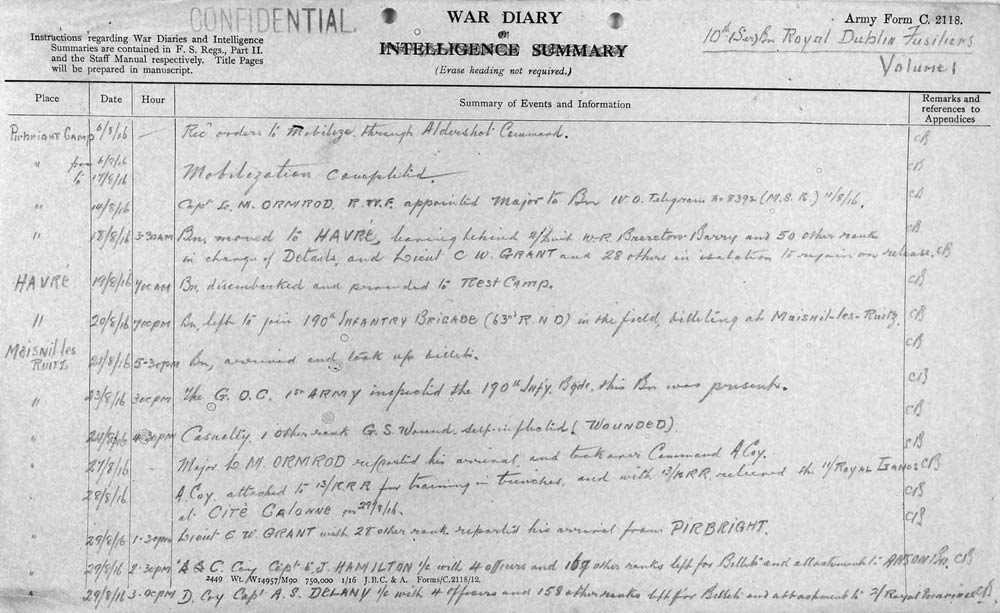 CONFIDENTIAL.
WAR DIARY
or
INTELLIGENCE SUMMARY
(Erase heading not required.)
Army Form C. 2118.
Instructions regarding War Diaries and Intelligence
Summaries are contained in F. S. Regs., Part II.
and the Staff Manual respectively. Title Pages
will be prepared in manuscript.
10th (Ser) Bn Royal Dublin Fusiliers
Volume 1
Place Date Hour Summary of Events and Information Remarks and references to Appendices
Pirbright Camp 6/8/16 — Recd orders to Mobilize through Aldershot Command. CB
" from 6/8/16
to 17/8/16 Mobilization Completed. CB
" 14/8/16 Capt L. M. ORMROD. R.W.F. appointed Major to Bn W.O. Telegram No 8392 (M.S.R.) 11/8/16. CB
" 18/8/16 3-30AM Bn. moved to HAVRÉ, leaving behind 2/Lieut W.R. Brereton-Barry and 50 other rank CB
in charge of Details, and Lieut C W. GRANT and 28 others in isolation to rejoin on release. CB
HAVRÉ 19/8/16 7.00AM Bn. disembarked and proceeded to Rest Camp. CB
" 20/8/16 7.00PM Bn, left to join 190th INFANTRY BRIGADE (63rd R N D) in the field, billeting at Maisnil-les-Ruitz. CB
Maisnil les
RUITZ 21/8/16 5-30pm Bn, arrived and took up billets. CB
" 23/8/16 3.0pm The G.O.C. 1st ARMY inspected the 190th Infy. Bgde, this Bn was present. CB
" 24/8/16 4-30pm Casualty, 1 Other rank G.S. Wound. self inflicted (WOUNDED). CB
" 27/8/16 - Major L. M. ORMROD reported his arrival, and took over Command A Coy. CB
" 28/8/16 A. Coy. attached to 13/KRR for training in trenches, and with 13/KRR relieved the 11/ROYAL CB
at CITÉ CALONNE on 29/8/16. CB
" 29/8/16 1-30pm Lieut E W. GRANT with 28 other rank reported his arrival from PIRBRIGHT.
" 29/8/16 2-30pm & C. Coy Capt J. HAMILTON i/c with 4 officers and other ranks left for and attachment to ANSON Bn. CB
2449 Wt. W14957/M90 750,000 1/16 J.B.C. & A. Forms/C.2118/12.
" 29/8/16 3-0pm D. Coy Capt A. S. DELANY i/c with 4 Officers and 158 other ranks left for and attachment to CB